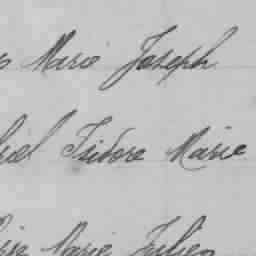 Marie Joseph
Isidore Marie
Marie Julien